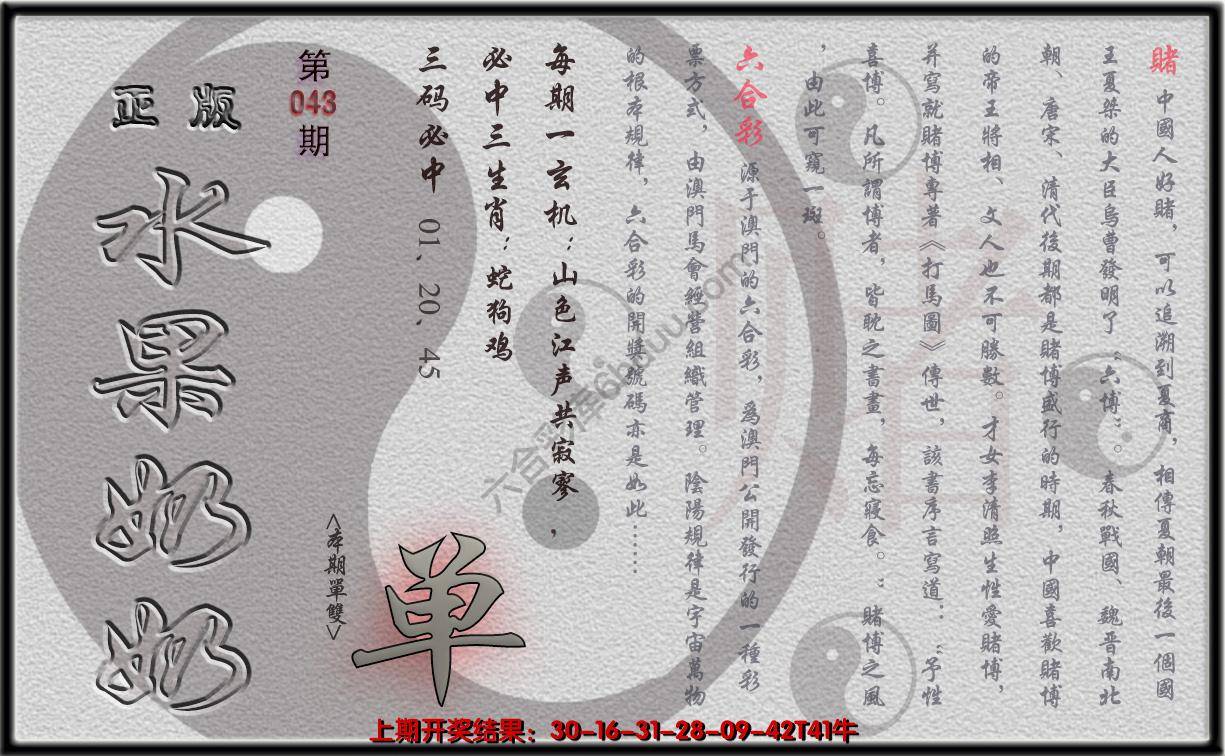 賭 中國人好賭，可以追溯到夏商，相傳夏朝最後一個國
王夏桀的大臣烏曹發明了“六博”。春秋戰國、魏晋南北
朝、唐宋、清代後期都是賭博盛行的時期，中國喜歡賭博
的帝王將相、文人也不可勝數。才女李清照生性愛賭博，
并寫就賭博專著《打馬圖》傳世，該書序言寫道：“予性
喜博。凡所謂博者，皆耽之書畫，每忘寢食。”賭博之風
，由此可窺一斑。
六合彩 源于澳門的六合彩，爲澳門公開發行的一種彩
票方式，由澳門馬會經營組織管理。陰陽規律是宇宙萬物
的根本規律，六合彩的開獎號碼亦是如此……
每期一玄机：山色江声共寂寥，
必中三生肖：蛇狗鸡
三码必中 01、20、45
第
043
期
正版
水果奶奶
<本期單雙>
单
賭
六合彩库6hduu.com
上期开奖结果：30-16-31-28-09-42T41牛